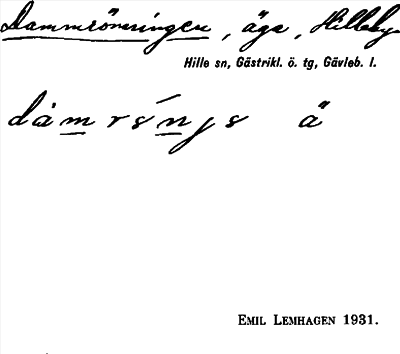 Dammröningen, äga, Hilleby
Hille sn, Gästrikl. ö. tg, Gävleb. l.
ä
EMIL LEMHAGEN 1931.